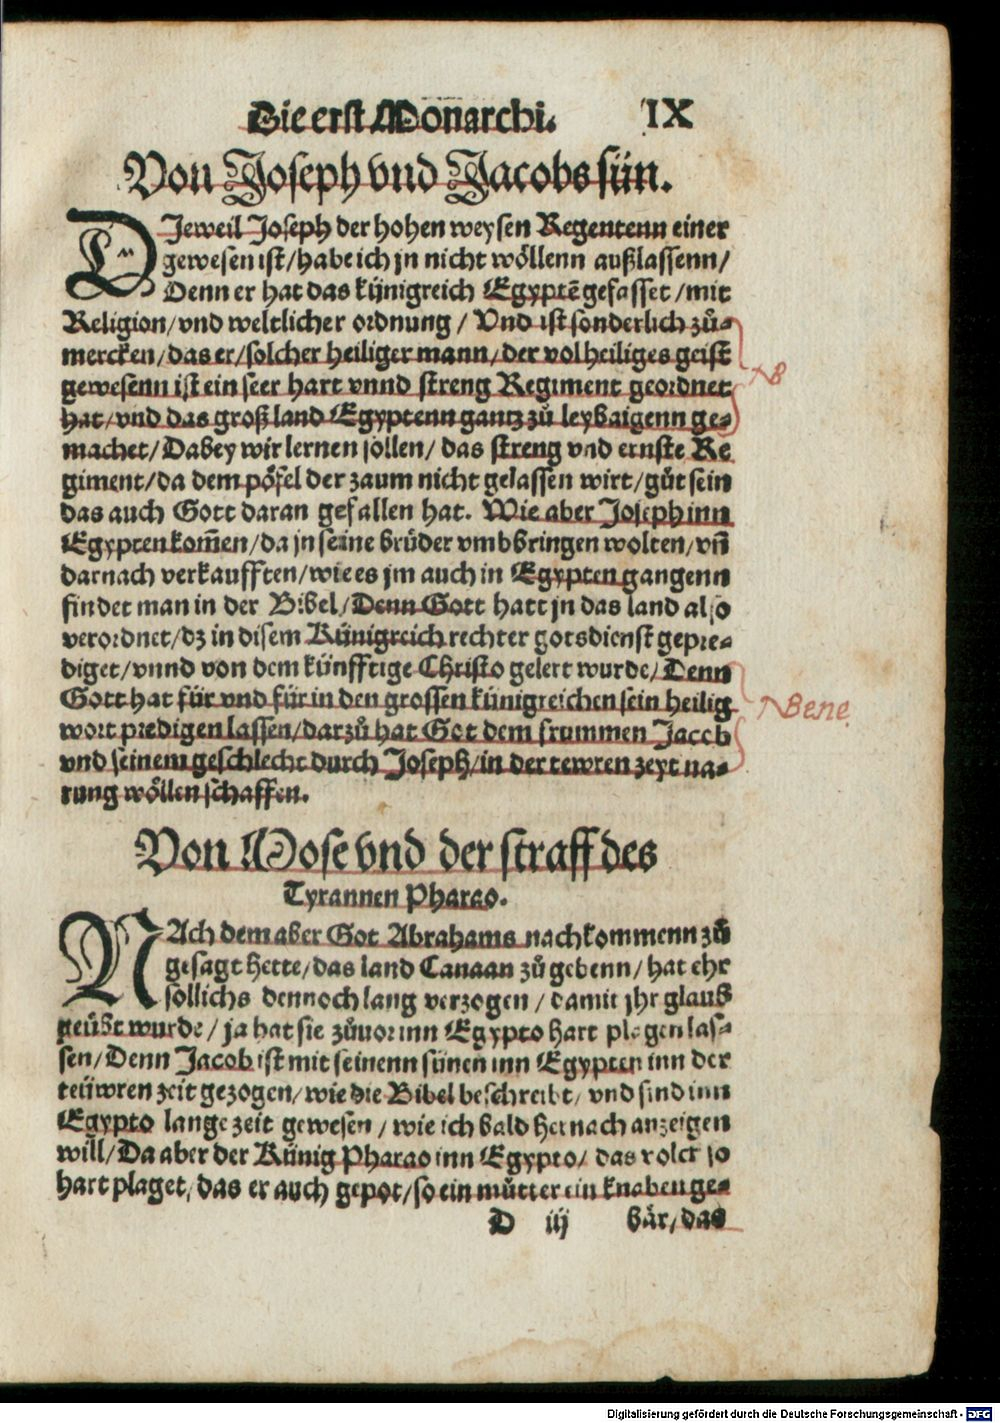 Die erst Monarchi. IX
Von Joseph vnd Jacobs sün.
DJeweil Joseph der hohen weysen Regentenn einer
gewesen ist/habe ich jn nicht wöllenn außlassenn/
Denn er hat das künigreich Egyptē gefasset/mit
Religion/vnd weltlicher ordnung/Vnd ist sonderlich zů-
mercken/das er/solcher heiliger mann/der vol heiliges geist
gewesenn ist ein seer hart vnnd streng Regiment geordnet
hat/vnd das groß land Egyptenn gantz zů leybaigenn ge-
machet/Dabey wir lernen sollen/das streng vnd ernste Re
giment/da dem pöfel der zaum nicht gelassen wirt/gůt sein
das auch Gott daran gefallen hat. Wie aber Joseph inn
Egypten kom̄en/da jn seine brüder vmbbringen wolten/vñ
darnach verkaufften/wie es jm auch in Egypten gangenn
findet man in der Bibel/Denn Gott hatt jn das land also
verordnet/dz in disem Künigreich rechter gotsdienst gepre-
diget/vnnd von dem künfftige Christo gelert wurde/Denn
Gott hat für vnd für in den grossen künigreichen sein heilig
wort predigen lassen/darzů hat Got dem frummen Jacob
vnd seinem geschlecht durch Joseph/in der tewren zeyt na-
rung wöllen schaffen.
NB
NBene
Von Mose vnd der straff des
Tyrannen Pharao.
NAch dem aber Got Abrahams nachkommenn zů
gesagt hette/das land Canaan zů gebenn/hat ehr
söllichs dennoch lang verzogen/damit jhr glaub
geübt wurde/ja hat sie zůvor inn Egypto hart plagen las-
sen/Denn Jacob ist mit seinenn sünen inn Egypten inn der
teüwren zeit gezogen/wie die Bibel beschreibt/vnd sind inn
Egypto lange zeit gewesen/wie ich bald hernach anzeigen
will/Da aber der Künig Pharao inn Egypto/das volck so
hart plaget/das er auch gepot/so ein můtter ein knaben ge-
D iij bär/das
Digitalisierung gefördert durch die Deutsche Forschungsgemeinschaft - DFG